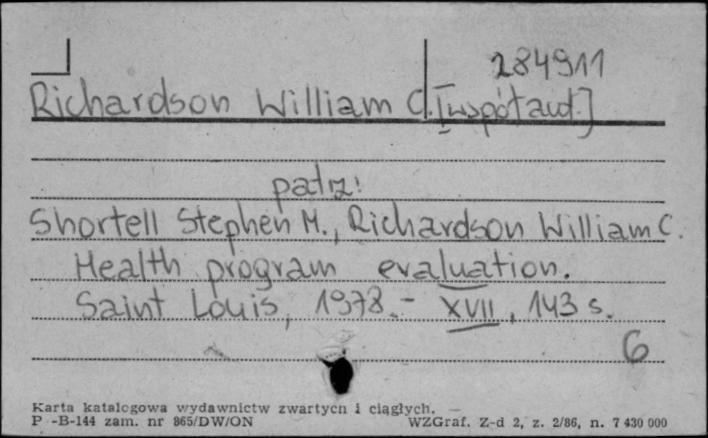 284911
Richardson William C. [współaut.]
patrz:
Shortell Stephen M., Richardson William C.
Health program evaluation.
Saint Louis, 1978.- XVII, 143 s.
6
Karta katalogowa wydawnictw zwartych i ciągłych.
P -B-144 zam. nr 865/DW/ON WZGraf. Z-d 2, z. 2/86, n. 7 430 000